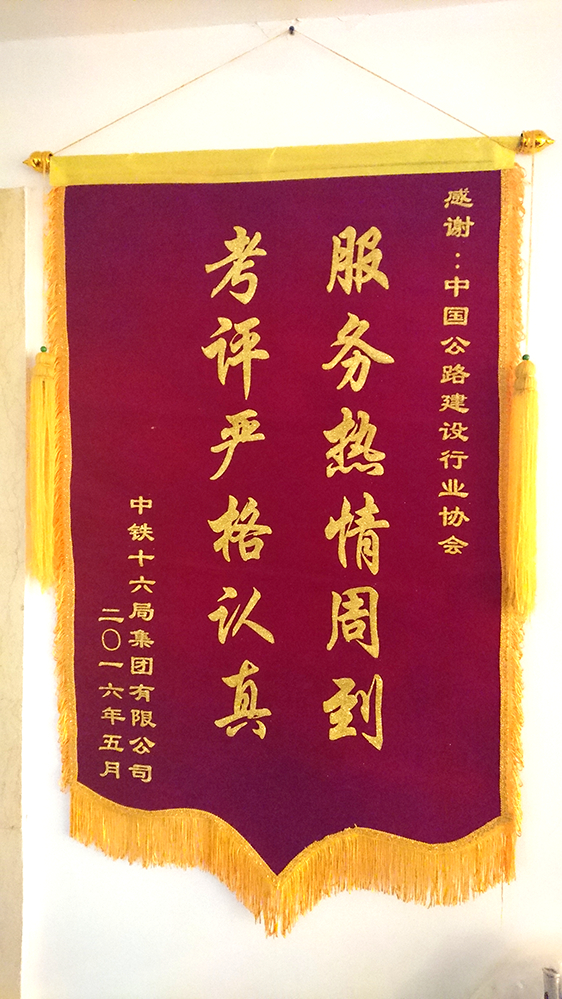 感谢：中国公路建设行业协会
服务热情周到
考评严格认真
中铁十六局集团有限公司
二〇一六年五月